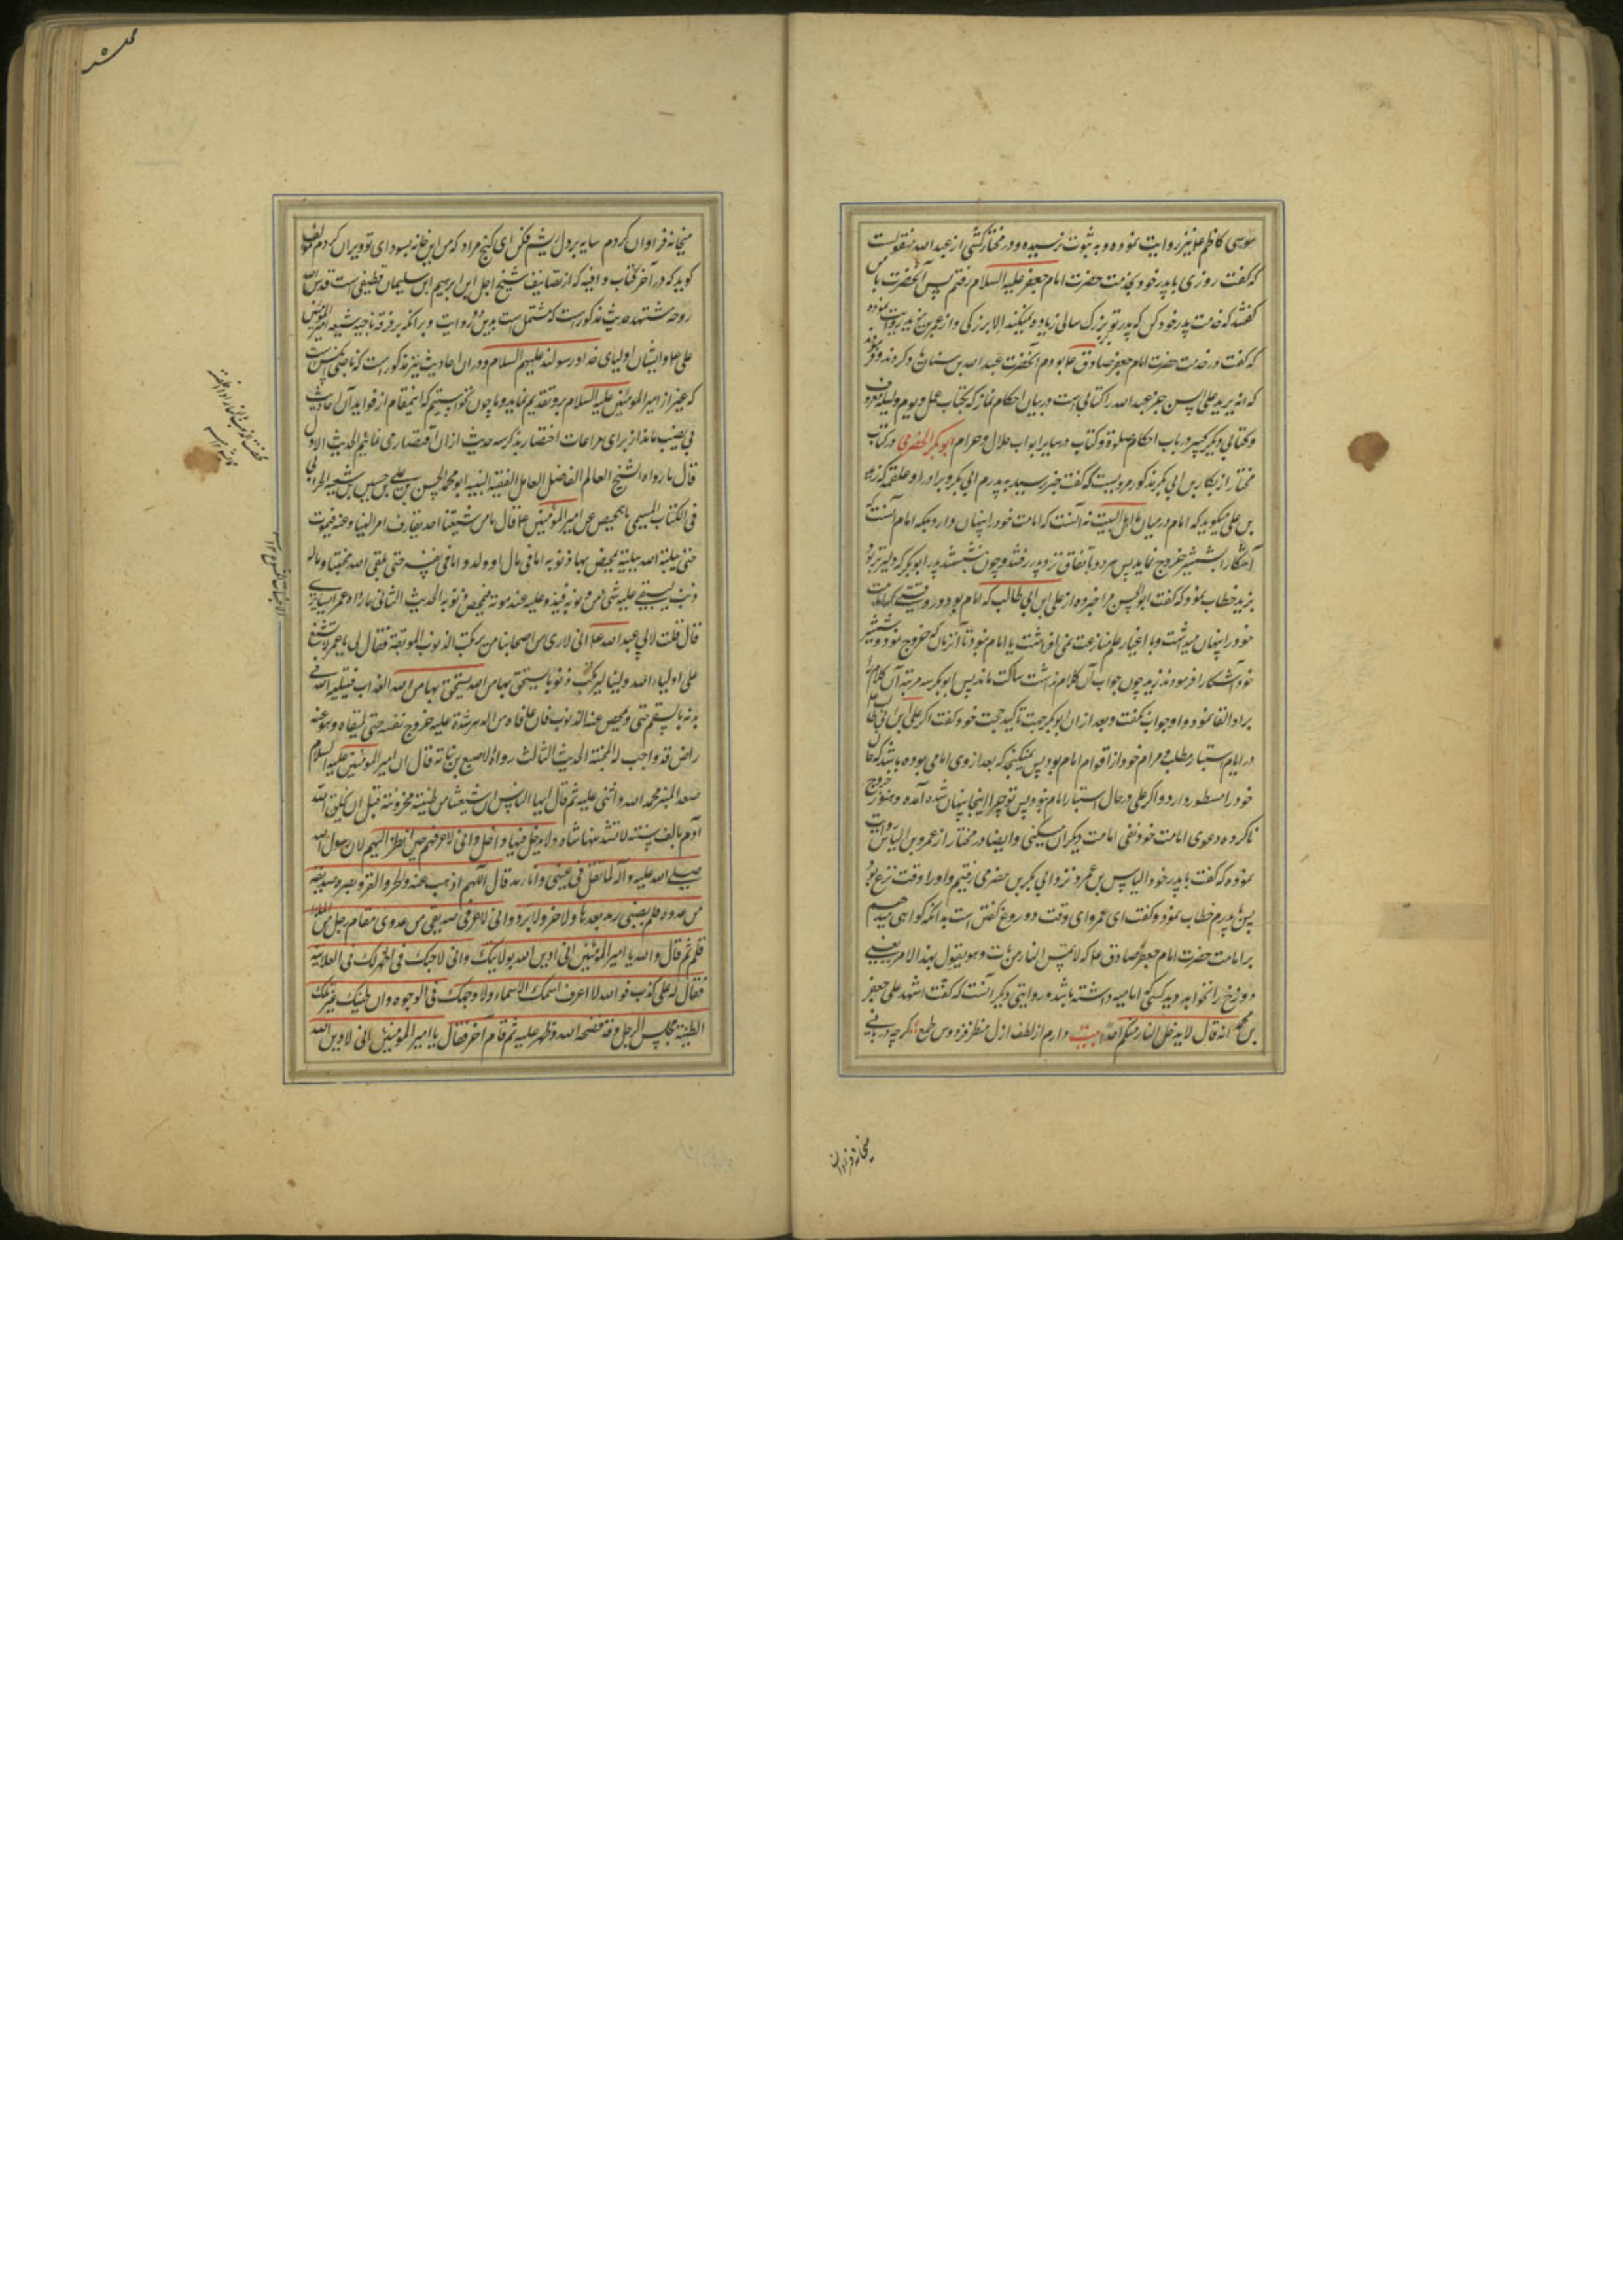 موسی کاظم ع نیز روایت نموده و به ثبوت نرسیده و در مختار کشی از عبد الله منقولست
که گفت روزی با پدر خود بخدمت حضرت امام جعفر علیه السلام رفتم پس آنحضرت با من
گفتند که خدمت پدر خود کن که پدر تو بزرگ سالی زیاده نمیکند الا بزرگی و از عمر بن یزید روایت نموده
که گفت در خدمت حضرت امام جعفر صادق ع بودم آنحضرت عبد الله بن سنان را ذکر کردند و فرمودند
که انه یزید علی السن خیرا عبد الله را کتابی است در بیان احکام نماز که بکتاب عمل و یوم و لیله معروف
و کتابی دیگر کبیر در باب احکام صلوة و کتاب در سایر ابواب حلال و حرام ابو بکر الحضرمی در کتاب
مختار از بکار بن ابی بکر مذکور مرویست که گفت خبر رسید به پدرم ابی بکر و برادر او علقمه که زید
بن علی میگوید که امام در میان ما اهل البیت نه آنست که امامت خود را پنهان دارد بلکه امام آنست که
آشکارا بشمشیر خروج نماید پس هر دو باتفاق نزد زید رفتند و چون نشستند پدر ابو بکر که دلیرتر بود
بزید خطاب نمود که گفت ابو الحسن مرا خبر ده از علی ابن ابی طالب که امام بود در وقتی که امامت
خود را پنهان میداشت و با اغیار علم منازعت نمی افراشت یا امام نبود تا آنزمان که خروج نمود و شمشیر
خود آشکارا فرمودند زید چون جواب آن کلام نداشت ساکت ماند پس ابو بکر سه مرتبه آن کلام را
برو القا نمود و او جواب نگفت و بعد از آن ابو بکر جهت تاکید حجت خود گفت اگر علی ابن ابی طالب
در ایام استتار مطلب و مرام خود از اقوام امام بود پس ممکنست که بعد از وی امامی بوده باشد که حال
خود را مستور دارد و اگر علی در حال استتار امام نبود پس تو چرا اینجا پنهان شده آمده و هنوز خروج
ناکرده دعوی امامت خود و نفی امامت دیگران میکنی و ایضا در مختار از عمرو بن الیاس روایت
نموده که گفت با پدر خود الیاس بن عمرو نزد ابی بکر بن حضرمی رفتیم و او را وقت نزع بود
پس با پدرم خطاب نمود و گفت ای عمرو این وقت دروغ گفتن نیست بدانکه گواهی میدهم
بر امامت حضرت امام جعفر صادق ع که لا تمس النار من مات و هو یقول بهذا الامر یعنی
دوزخ را نخواهد دید کسی که امامیه داشته باشد و در روایتی دیگر آنست که گفت اشهد علی جعفر
بن محمد انه قال لا یدخل النار منکم احد بیت دارم از لطف ازل منظر فردوس طمع گرچه دربانی
میخانه فراوان
میخانه فراوان کردم سایه بر دل ریشم فکن ای گنج مراد که من این خانه بسودای تو ویران کردم مولف
گوید که در آخر کتاب وافیه که از تصانیف شیخ اجل ابن ابراهیم ابن سلیمان قطیفی است قدس الله
روحه مشتهد حدیث مذکور است که مشتمل است بدین دو روایت و بر آنکه بر فرقه ناجیه شیعه امیر المومنین
علی ع و ایشان اولیای خدا و رسولند علیهم السلام و در آن احادیث نیز مذکور است که ناصبی کسی است
که غیر از امیر المومنین علیه السلام برو تقدیم نماید و ما چون نخواستیم که اینمقام از فواید آن احادیث
بی نصیب ماند از برای مراعات اختصار بذکر سه حدیث از آن اقتصار می نمائیم الحدیث الاول
قال ما رواه الشیخ العالم الفاضل العامل الفقیه النبیه ابو محمد الحسن بن علی بن حسین بن شعبه الحرانی
فی الکتاب المسمی بالتمحیص عن امیر المومنین ع قال ما من شیعتنا احد یقارف امرا نهیناه عنه فیموت
حتی یبلیه الله ببلیة یمحص بها ذنوبه اما فی مال او ولد و اما فی نفسه حتی یلقی الله محبنا و ماله
ذنب یبقی علیه شی من ذنوبه فیشدد علیه عند موته فیمحص ذنوبه الحدیث الثانی ما رواه عمر السابری
قال قلت لابی عبد الله ع انی لاری من اصحابنا من یرتکب الذنوب الموبقة فقال لی یا عمر لا تشنع
علی اولیاء الله ولینا لیرتکب ذنوبا یستحق بها من الله العذاب فیبتلیه الله فی
بدنه بالسقم حتی یمحص عنه الذنوب فان عافاه من الدهر شدد علیه خروج نفسه حتی یلقاه و هو عنه
راض قد اوجب له الجنة الحدیث الثالث رواه الاصبغ بن نباته قال ان امیر المومنین علیه السلام
صعد المنبر فحمد الله و اثنی علیه ثم قال ایها الناس ان شیعتنا من طینة مخزونة قبل ان یخلق الله
آدم بالف سنة لا یشذ منها شاذ و لا یدخل فیها داخل و انی لاعرفهم حین انظر الیهم لان رسول الله
صلی الله علیه و آله لما تفل فی عینی و انا رمد قال اللهم اذهب عنه الحر و القر و بصره صدیقه
من عدوه فلم یصبنی رمد بعدها و لا حر و لا برد و انی لاعرف صدیقی من عدوی فقام رجل من الملا
فسلم ثم قال و الله یا امیر المومنین انی ادین الله بولایتک و انی لاحبک فی السر کما فی العلانیة
فقال له علی کذبت فو الله لا اعرف اسمک فی الاسماء و لا وجهک فی الوجوه و ان طینتک من غیر تلک
الطینة فجلس الرجل و قد فضحه الله و ظهر علیه ثم قام آخر فقال یا امیر المومنین انی لادین الله